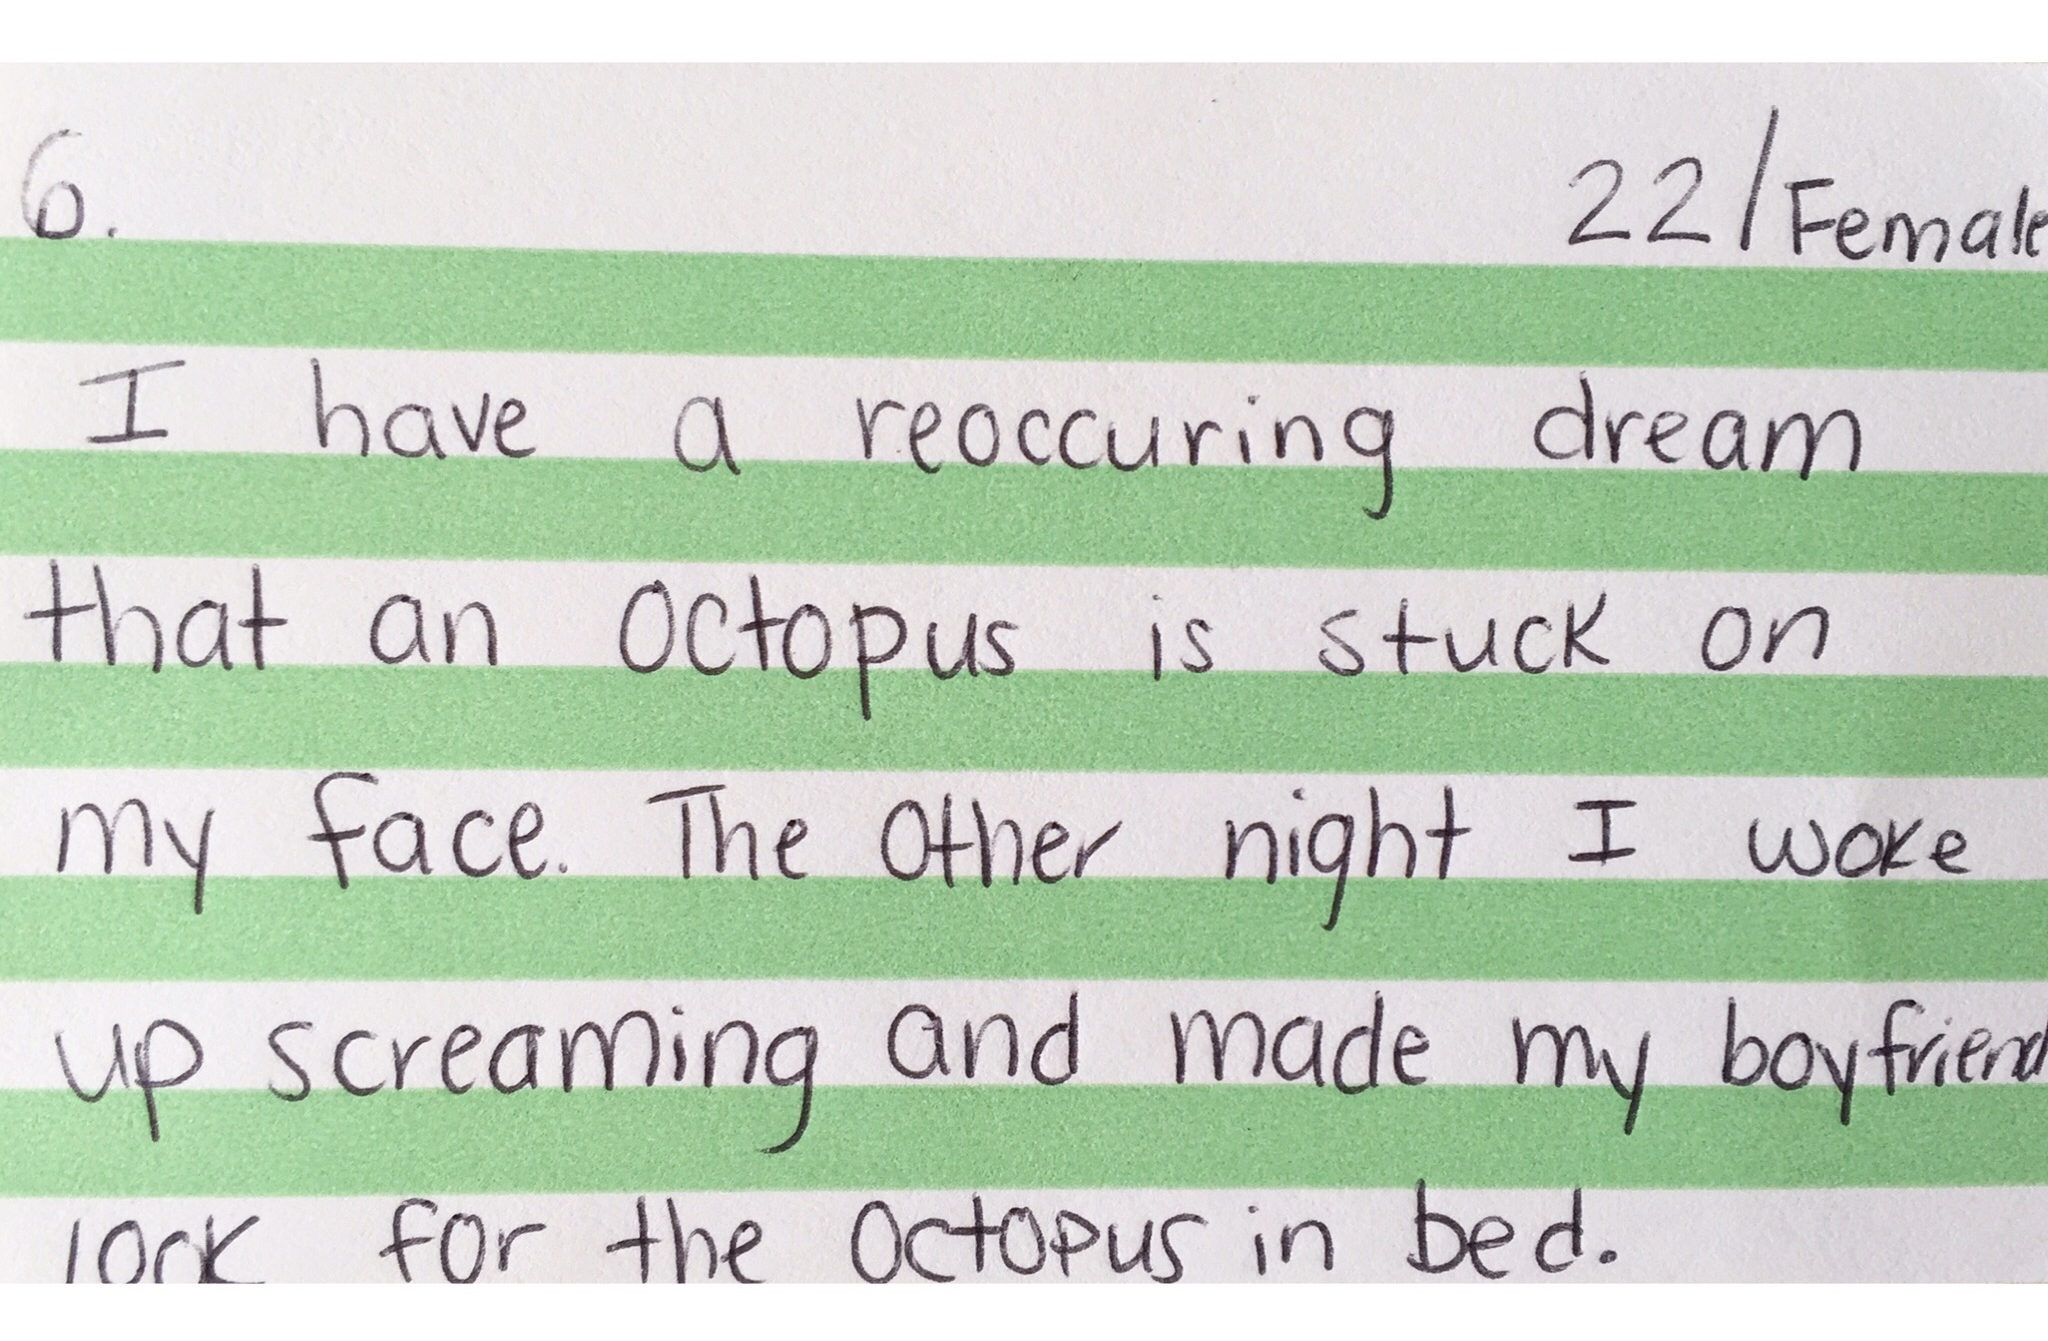 6.
22/Female
I have a reoccuring dream
that an octopus is stuck on
my face. The other night I woke
up screaming and made my boyfriend
look for the octopus in bed.